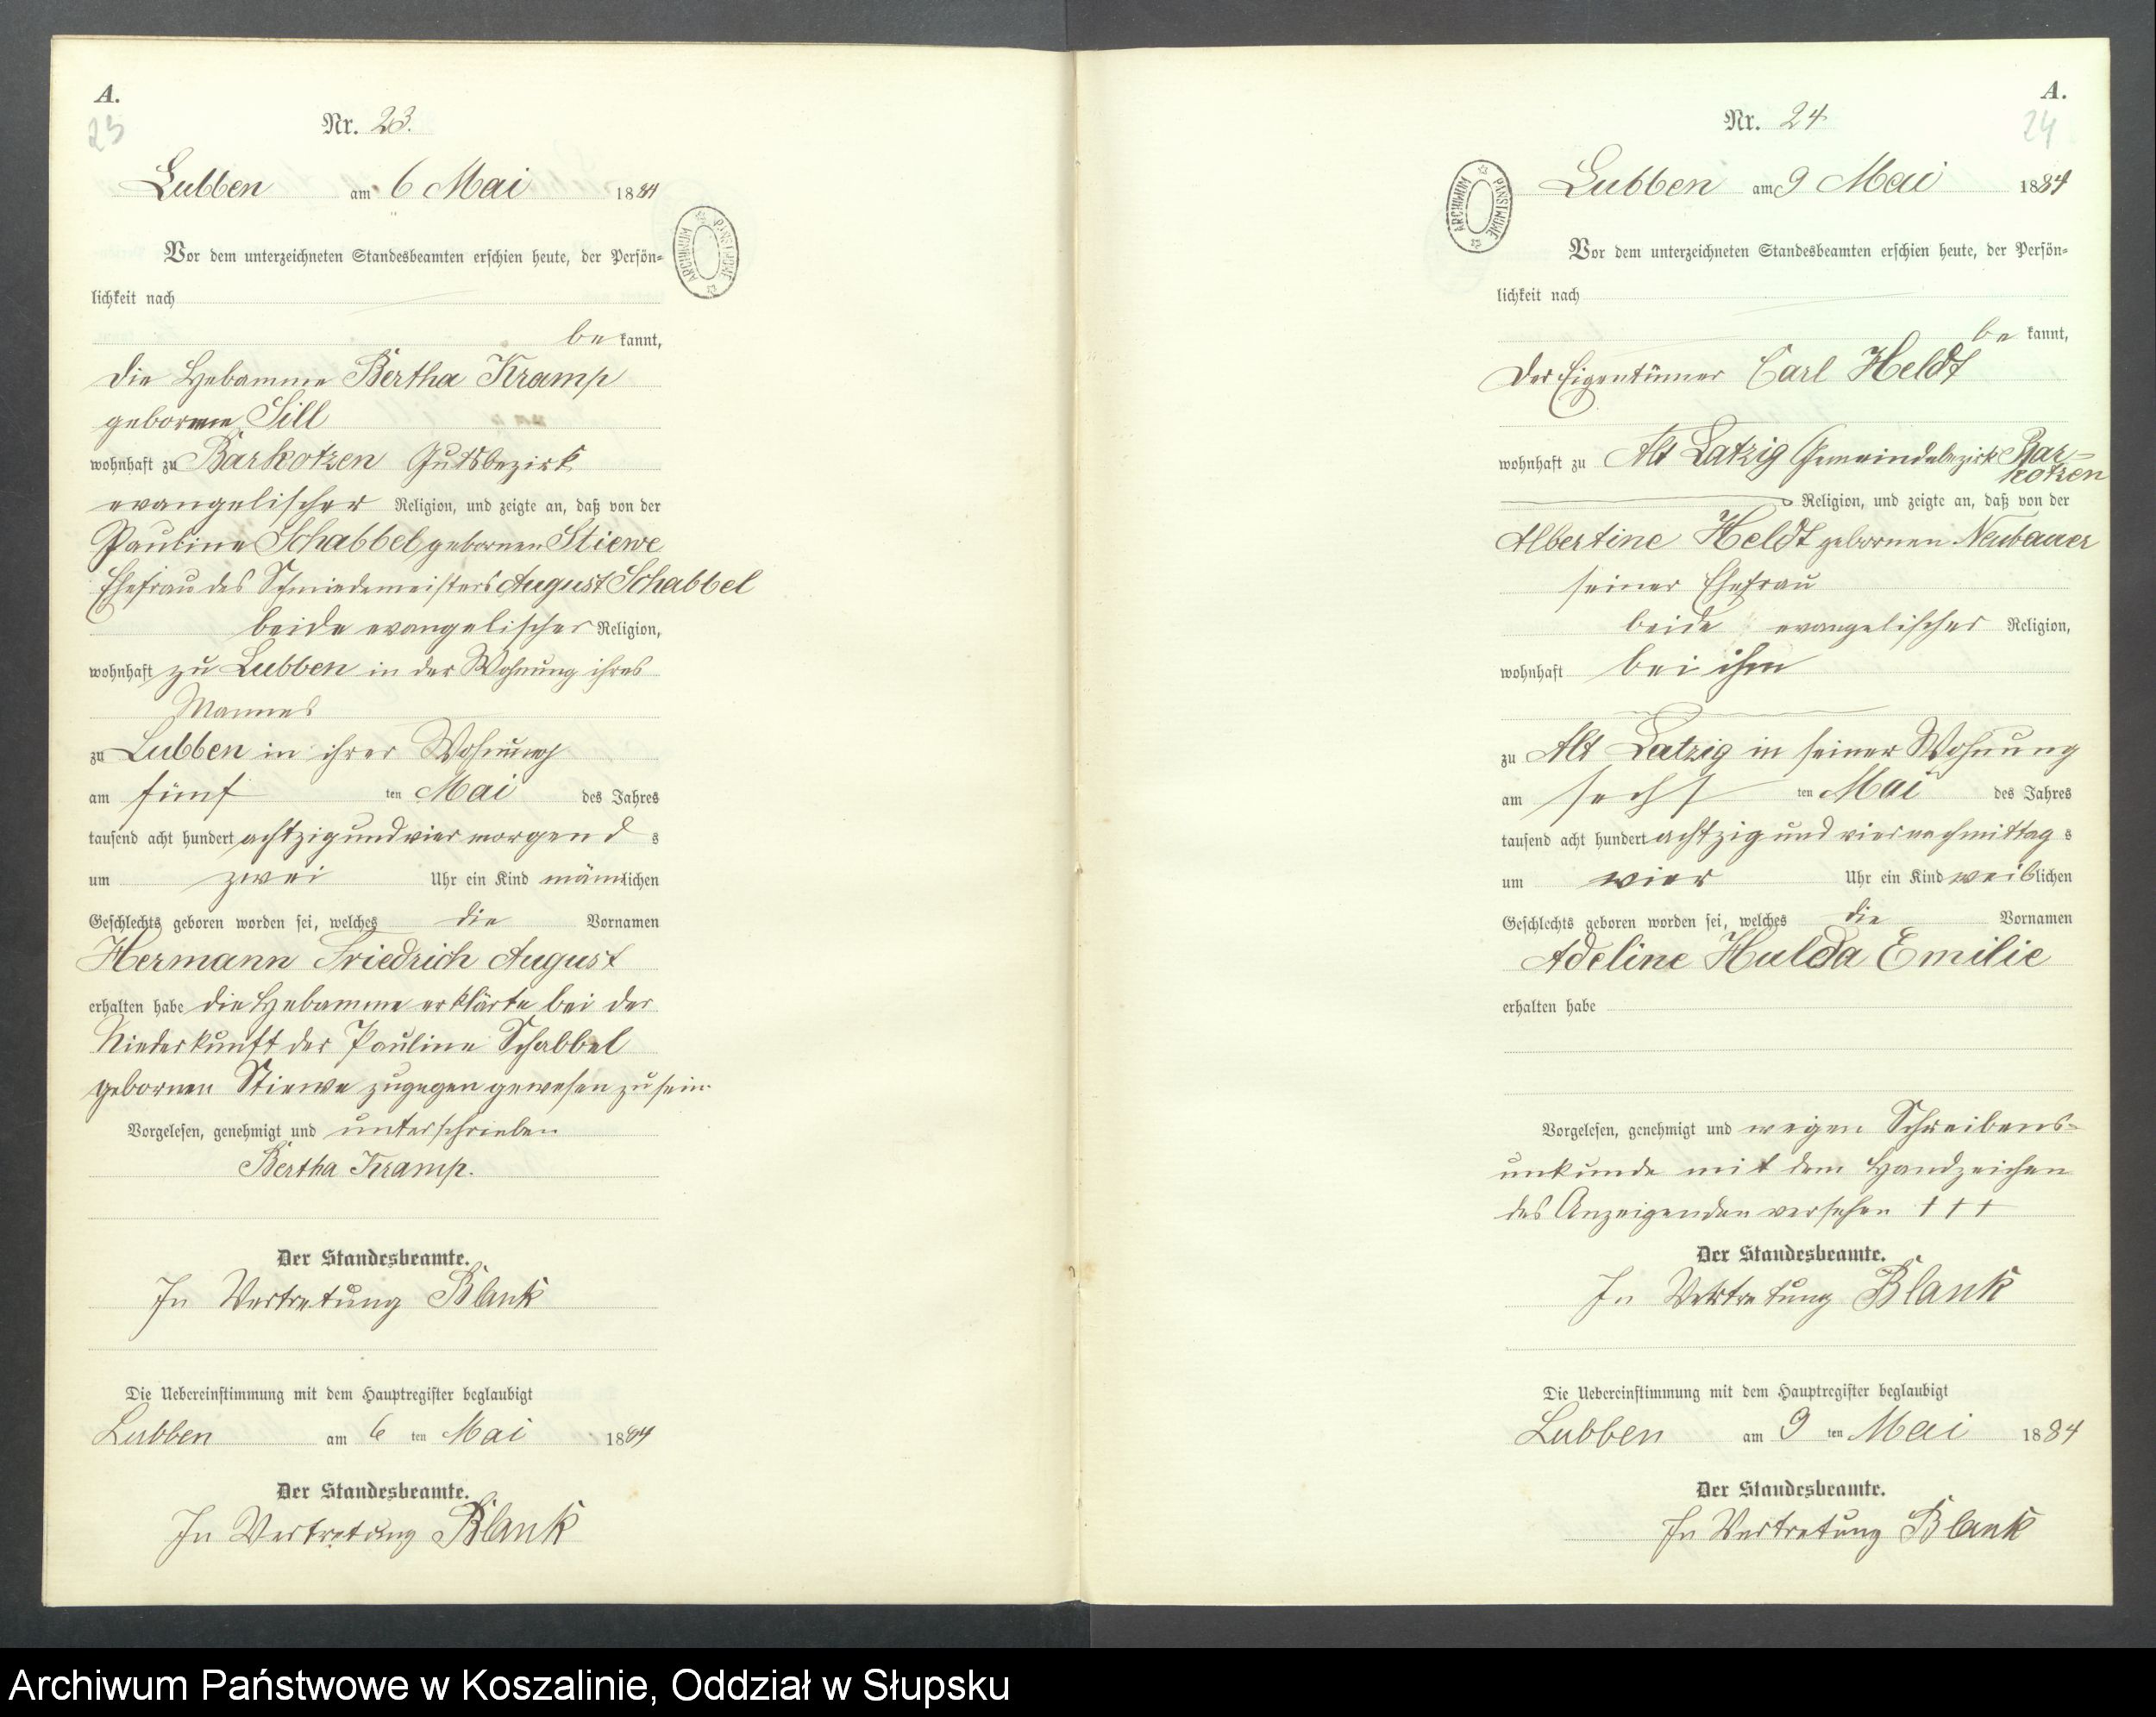 A.
23
Nr. 23.
Lubben am 6 Mai 1884
ARCHIWUM PAŃSTWOWE
Vor dem unterzeichneten Standesbeamten erschien heute, der Persön=
lichkeit nach
be kannt,
die Hebamme Bertha Kramp
geborene Sill
wohnhaft zu Barkotzen Gutsbezirk
evangelischer Religion, und zeigte an, daß von der
Pauline Schabbel gebornen Stiewe
Ehefrau des Schmiedemeisters August Schabbel
beide evangelischer Religion,
wohnhaft zu Lubben in der Wohnung ihres
Mannes
zu Lubben in ihrer Wohnung
am fünf ten Mai des Jahres
tausend acht hundert achtzig und vier morgend s
um zwei Uhr ein Kind männlichen
Geschlechts geboren worden sei, welches die Vornamen
Hermann Friedrich August
erhalten habe die Hebamme erklärte bei der
Niederkunft der Pauline Schabbel
gebornen Stiewe zugegen gewesen zu sein.
Vorgelesen, genehmigt und unterschrieben
Bertha Kramp.
Der Standesbeamte.
In Vertretung Blank
Die Uebereinstimmung mit dem Hauptregister beglaubigt
Lubben am 6 ten Mai 1884
Der Standesbeamte.
In Vertretung Blank
A.
24
Nr. 24
Lubben am 9 Mai 1884
ARCHIWUM PAŃSTWOWE
Vor dem unterzeichneten Standesbeamten erschien heute, der Persön=
lichkeit nach
be kannt,
Der Eigentümer Carl Heldt
wohnhaft zu Alt Latzig Gemeindebezirk Bar=
kotzen
Religion, und zeigte an, daß von der
Albertine Heldt gebornen Neubauer
seiner Ehefrau
beide evangelischer Religion,
wohnhaft bei ihm
zu Alt Latzig in seiner Wohnung
am sechs ten Mai des Jahres
tausend acht hundert achtzig und vier nachmittag s
um vier Uhr ein Kind weiblichen
Geschlechts geboren worden sei, welches die Vornamen
Adeline Hulda Emilie
erhalten habe
Vorgelesen, genehmigt und wegen Schreibens=
unkunde mit dem Handzeichen
des Anzeigenden versehen † † †
Der Standesbeamte.
In Vertretung Blank
Die Uebereinstimmung mit dem Hauptregister beglaubigt
Lubben am 9 ten Mai 1884
Der Standesbeamte.
In Vertretung Blank
Archiwum Państwowe w Koszalinie, Oddział w Słupsku